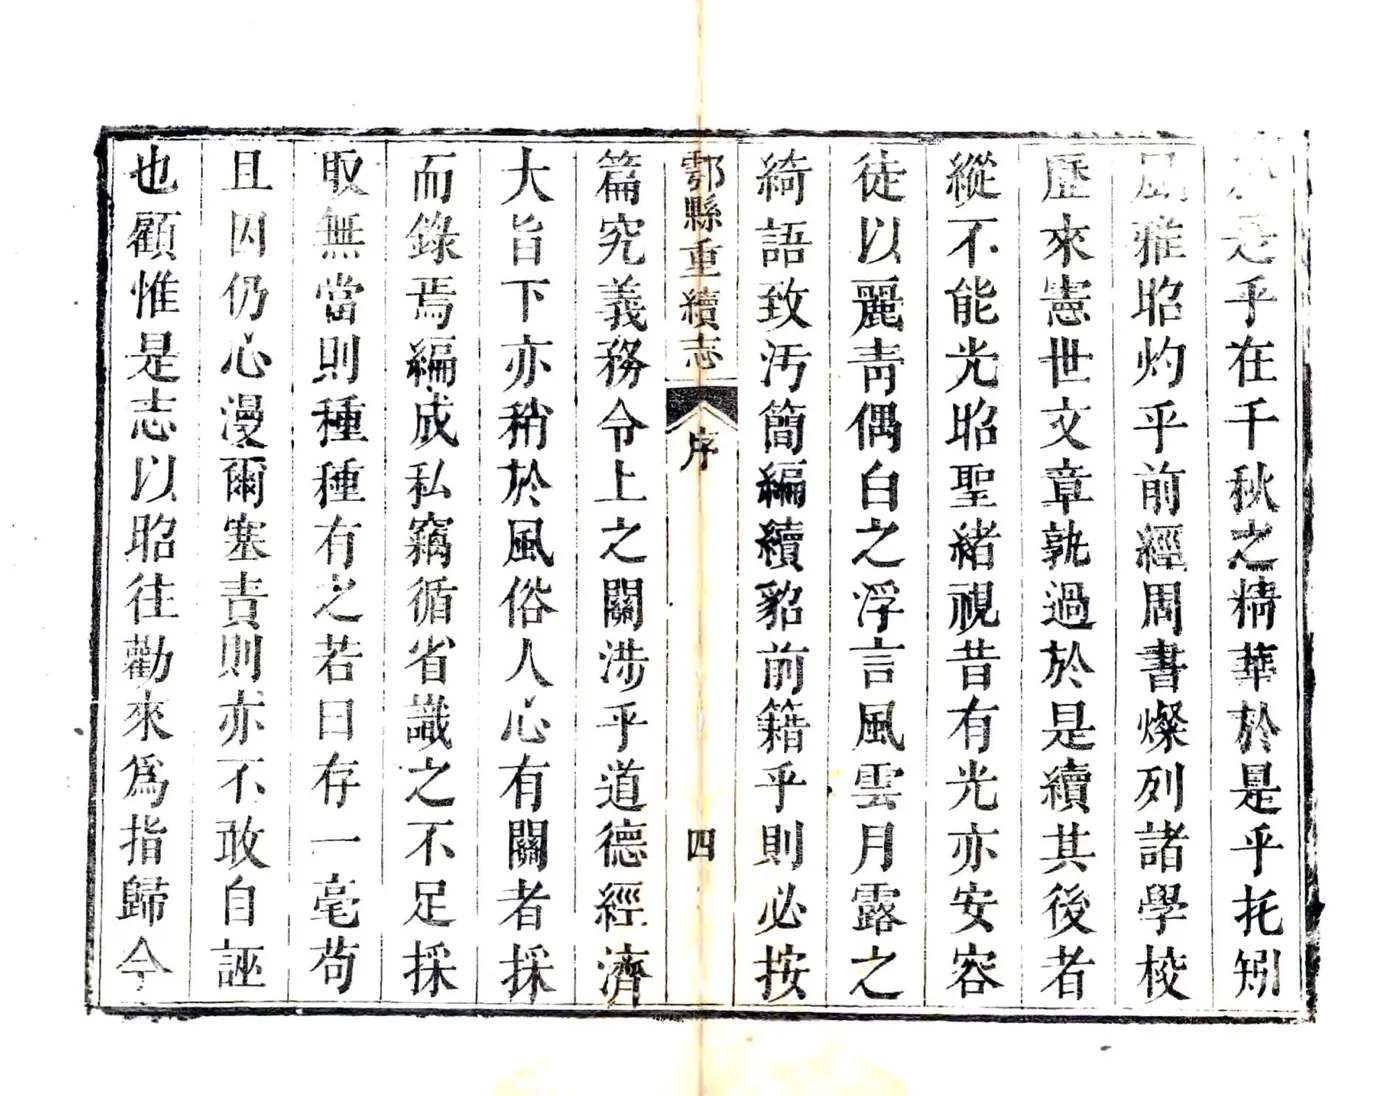 是乎在千秋之精華於是乎托矧
風雅昭灼乎前經周書燦列諸學校
歷來憲世文章孰過於是續其後者
縱不能光昭聖緒視昔有光亦安容
徒以麗青偶白之浮言風雲月露之
綺語致汚簡編續貂前籍乎則必按
鄠縣重續志
序
四
篇究義務令上之關涉乎道德經濟
大旨下亦稍於風俗人心有關者採
而錄焉編成私竊循省識之不足採
取無當則種種有之若曰存一毫苟
且因仍心漫爾塞責則亦不敢自誣
也顧惟是志以昭往勸來爲指歸今